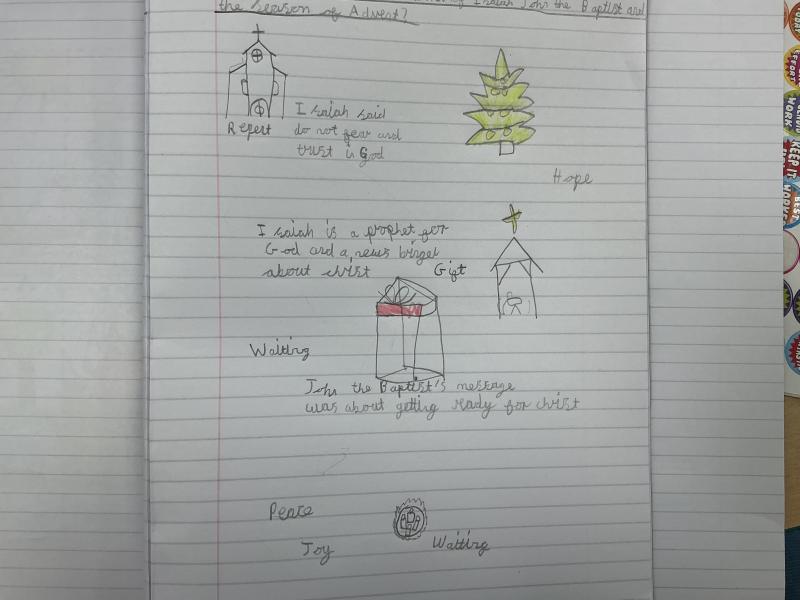 of Isaiah John the Baptist and
the season of Advent?
Repert
Isaiah said
do not fear and
trust is God
Hope
Isaiah is a prophet for
God and a news birget
about christ
Gift
Waiting
John the Baptist's message
was about getting ready for christ
Peace
Joy
Waiting
EFFORT
WORK
KEEP IT
BEST